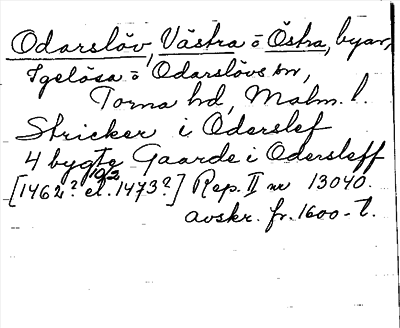 Odarslöv, Västra o Östra, byar,
Igelösa o Odarslövs snr,
Torna hd, Malm. l.
Stricker i Oderslef
4 bygte Gaarde i Odersleff
10/2
[1462? el. 1473?] Rep. II nr 13040.
avskr. fr. 1600-t.